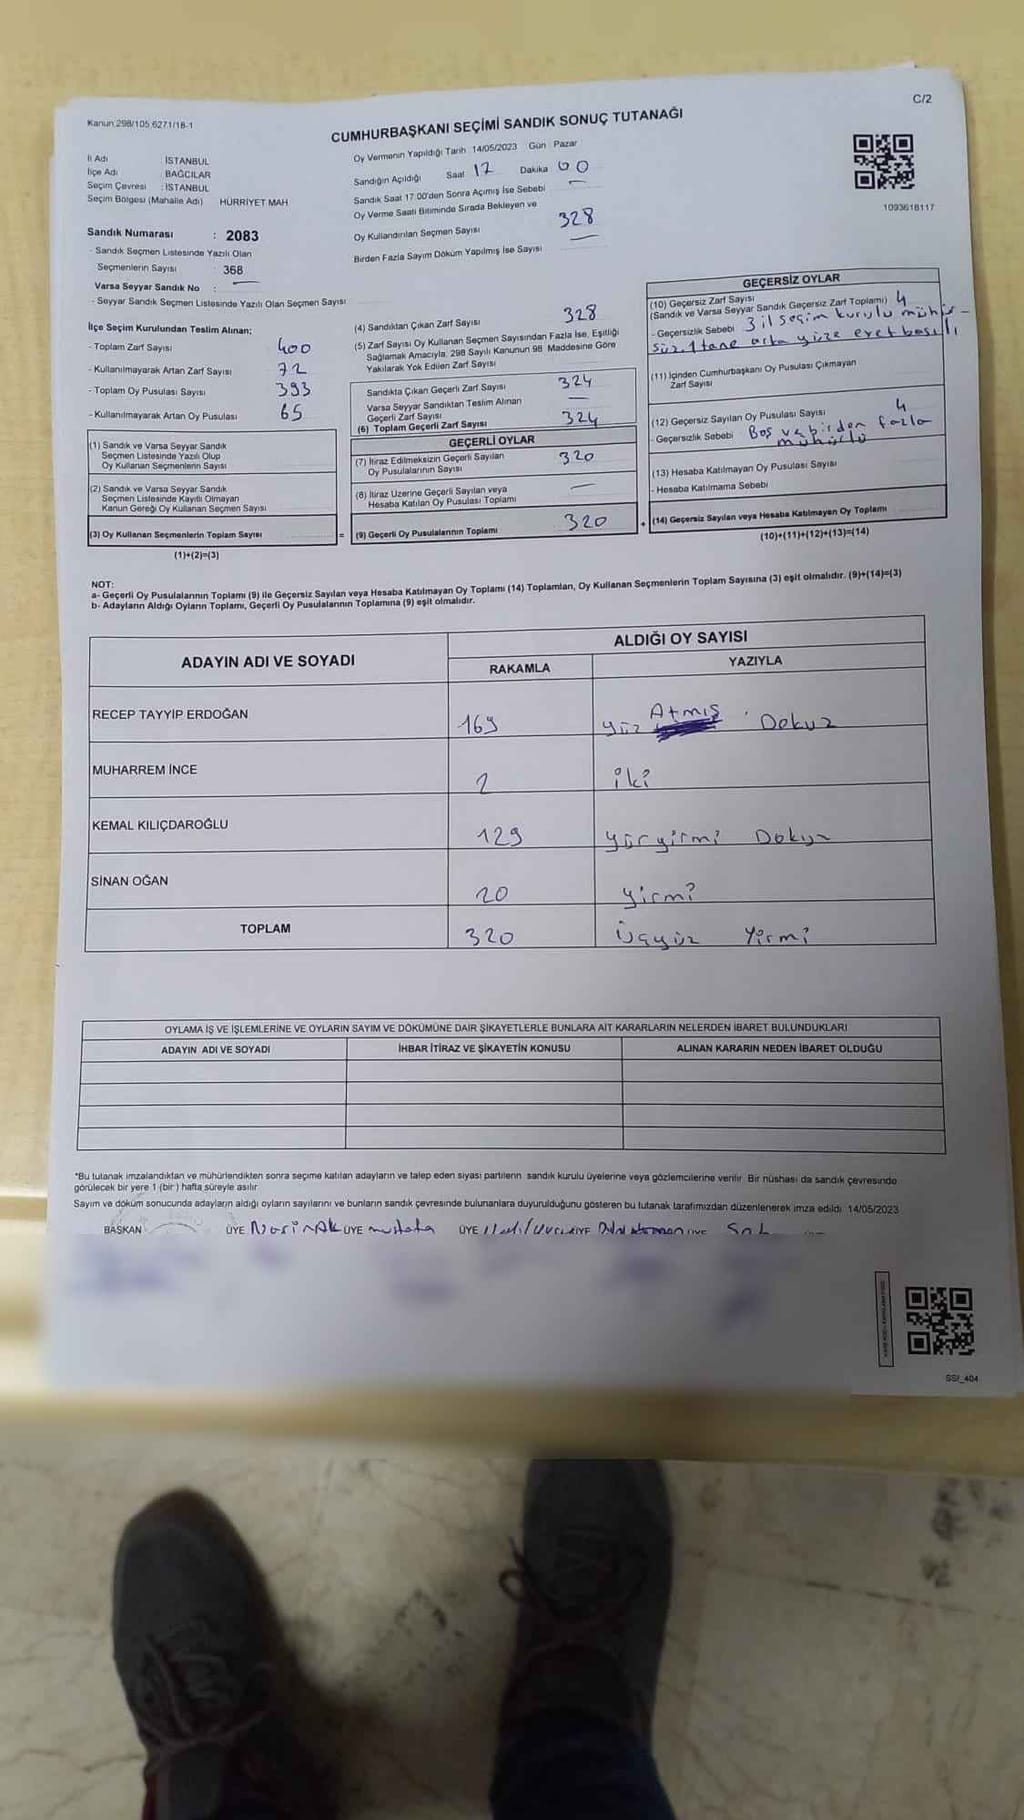 Kanun:298/105,6271/18-1
C/2
CUMHURBAŞKANI SEÇİMİ SANDIK SONUÇ TUTANAĞI
İl Adı İSTANBUL
İlçe Adı : BAĞCILAR
Seçim Çevresi : İSTANBUL
Seçim Bölgesi (Mahalle Adı) HÜRRİYET MAH
Sandık Numarası : 2083
- Sandık Seçmen Listesinde Yazılı Olan
Seçmenlerin Sayısı : 368
Varsa Seyyar Sandık No : —
- Seyyar Sandık Seçmen Listesinde Yazılı Olan Seçmen Sayısı
Oy Vermenin Yapıldığı Tarih 14/05/2023 Gün Pazar
Sandığın Açıldığı Saat 17 Dakika 00
Sandık Saat 17:00'den Sonra Açılmış İse Sebebi —
Oy Verme Saati Bitiminde Sırada Bekleyen ve
Oy Kullandırılan Seçmen Sayısı 328
Birden Fazla Sayım Döküm Yapılmış İse Sayısı —
1093618117
İlçe Seçim Kurulundan Teslim Alınan;
- Toplam Zarf Sayısı 400
- Kullanılmayarak Artan Zarf Sayısı 72
- Toplam Oy Pusulası Sayısı 393
- Kullanılmayarak Artan Oy Pusulası 65
(1) Sandık ve Varsa Seyyar Sandık
Seçmen Listesinde Yazılı Olup
Oy Kullanan Seçmenlerin Sayısı
(2) Sandık ve Varsa Seyyar Sandık
Seçmen Listesinde Kayıtlı Olmayan
Kanun Gereği Oy Kullanan Seçmen Sayısı
(3) Oy Kullanan Seçmenlerin Toplam Sayısı
(1)+(2)=(3)
(4) Sandıktan Çıkan Zarf Sayısı 328
(5) Zarf Sayısı Oy Kullanan Seçmen Sayısından Fazla İse, Eşitliği
Sağlamak Amacıyla, 298 Sayılı Kanunun 98. Maddesine Göre
Yakılarak Yok Edilen Zarf Sayısı
Sandıkta Çıkan Geçerli Zarf Sayısı 324
Varsa Seyyar Sandıktan Teslim Alınan
Geçerli Zarf Sayısı —
(6) Toplam Geçerli Zarf Sayısı 324
GEÇERLİ OYLAR
(7) İtiraz Edilmeksizin Geçerli Sayılan
Oy Pusulalarının Sayısı 320
(8) İtiraz Üzerine Geçerli Sayılan veya
Hesaba Katılan Oy Pusulası Toplamı —
= (9) Geçerli Oy Pusulalarının Toplamı 320 +
GEÇERSİZ OYLAR
(10) Geçersiz Zarf Sayısı
(Sandık ve Varsa Seyyar Sandık Geçersiz Zarf Toplamı) 4
- Geçersizlik Sebebi 3 il seçim kurulu mühür-
süz. 1 tane arka yüze evet basılı
(11) İçinden Cumhurbaşkanı Oy Pusulası Çıkmayan
Zarf Sayısı
(12) Geçersiz Sayılan Oy Pusulası Sayısı 4
- Geçersizlik Sebebi Boş ve birden fazla
mühürlü
(13) Hesaba Katılmayan Oy Pusulası Sayısı
- Hesaba Katılmama Sebebi
(14) Geçersiz Sayılan veya Hesaba Katılmayan Oy Toplamı
(10)+(11)+(12)+(13)=(14)
NOT:
a- Geçerli Oy Pusulalarının Toplamı (9) ile Geçersiz Sayılan veya Hesaba Katılmayan Oy Toplamı (14) Toplamları, Oy Kullanan Seçmenlerin Toplam Sayısına (3) eşit olmalıdır. (9)+(14)=(3)
b- Adayların Aldığı Oyların Toplamı, Geçerli Oy Pusulalarının Toplamına (9) eşit olmalıdır.
ADAYIN ADI VE SOYADI ALDIĞI OY SAYISI
RAKAMLA YAZIYLA
RECEP TAYYİP ERDOĞAN 169 yüz Atmış Dokuz
MUHARREM İNCE 2 iki
KEMAL KILIÇDAROĞLU 129 yüzyirmi Dokuz
SİNAN OĞAN 20 yirmi
TOPLAM 320 Üçyüz Yirmi
OYLAMA İŞ VE İŞLEMLERİNE VE OYLARIN SAYIM VE DÖKÜMÜNE DAİR ŞİKAYETLERLE BUNLARA AİT KARARLARIN NELERDEN İBARET BULUNDUKLARI
ADAYIN ADI VE SOYADI İHBAR İTİRAZ VE ŞİKAYETİN KONUSU ALINAN KARARIN NEDEN İBARET OLDUĞU
*Bu tutanak imzalandıktan ve mühürlendikten sonra seçime katılan adayların ve talep eden siyasi partilerin sandık kurulu üyelerine veya gözlemcilerine verilir. Bir nüshası da sandık çevresinde
görülecek bir yere 1 (bir) hafta süreyle asılır.
Sayım ve döküm sonucunda adayların aldığı oyların sayılarını ve bunların sandık çevresinde bulunanlara duyurulduğunu gösteren bu tutanak tarafımızdan düzenlenerek imza edildi. 14/05/2023
BAŞKAN ÜYE ÜYE mustafa ÜYE ÜYE ÜYE
SSI_404